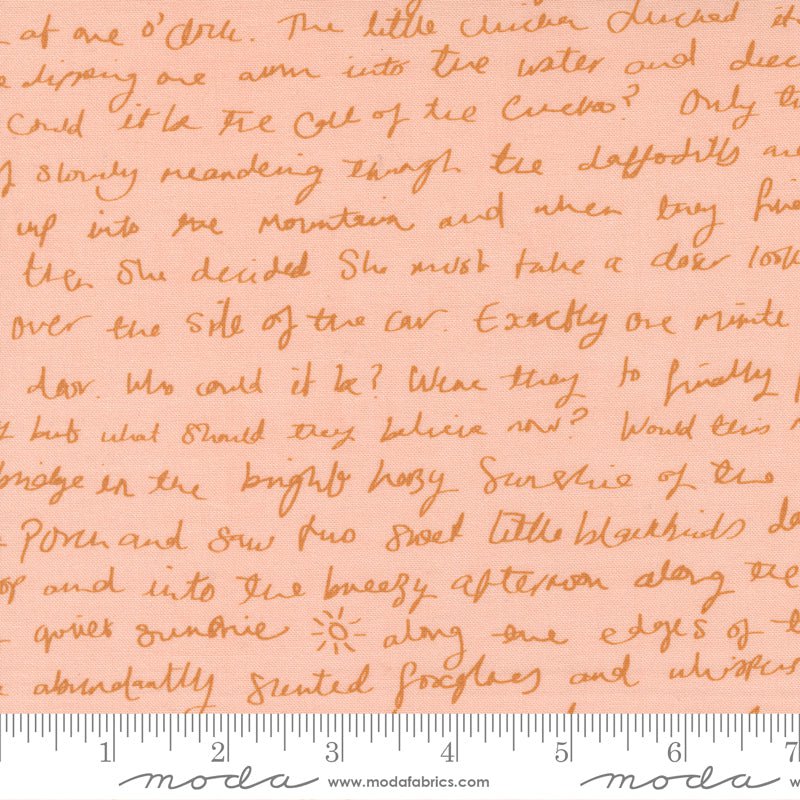 at one o'clock. The little chicken clucked it
dipping one arm into the water and deci
Could it be the call of the Cuckoo? Only th
slowly meandering through the daffodills are
up into the mountain and when they fin
then she decided She must take a closer look
over the side of the car. Exactly one minute
door. Who could it be? Were they to finally
but what should they believe now? Would this
bridge in the bright hazy Sunshie of the
Porch and saw two sweet little blackbirds
and into the breezy afternoon along the
quiet sunshie along the edges of t
abundantly scented foxgloves and whispers
1 2 3 4 5 6 7
moda www.modafabrics.com moda w